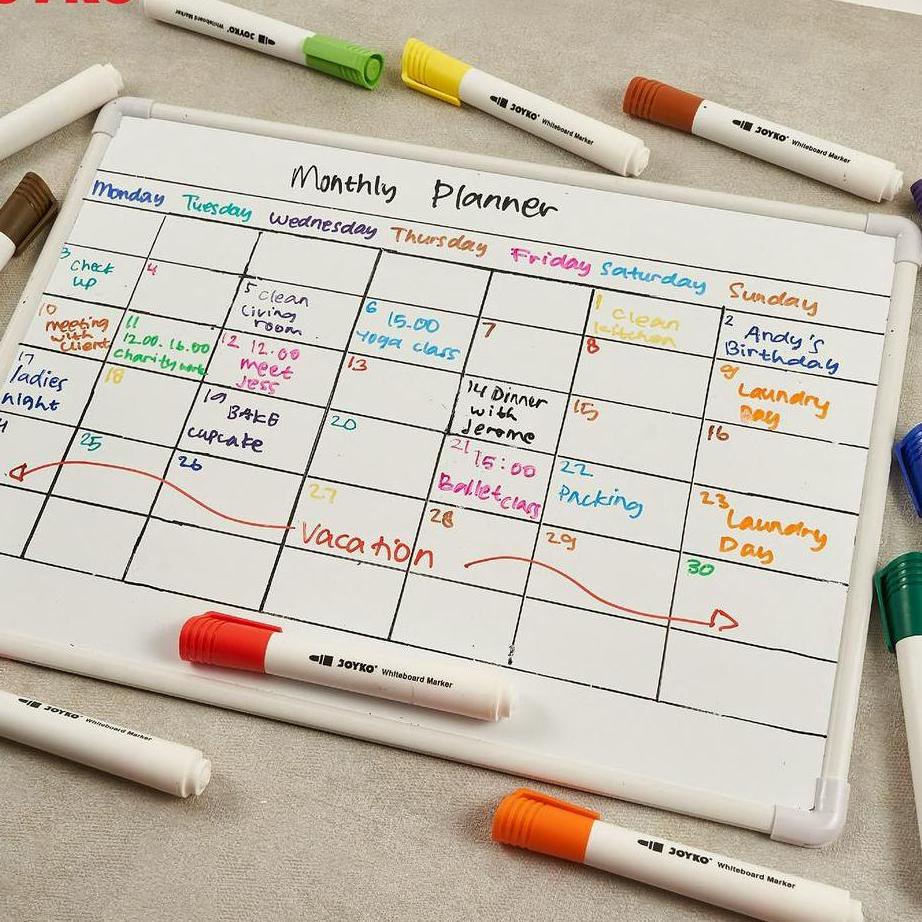 JOYKO
JOYKO Whiteboard Marker
JOYKO Whiteboard Marker
JOYKO Whiteboard Marker
Monthly Planner
Monday Tuesday Wednesday Thursday Friday Saturday Sunday
1 Clean
kitchen
2 Andy's
Birthday
3
Check
up
4
5 clean
living
room
6 15.00
Yoga class
7
8
9
Laundry
Day
10
meeting
with
Client
11
12.00-16.00
charity work
12 12.00
meet
Jess
13
14 Dinner
with
Jerome
15
16
17
ladies
night
18
19 BAKE
cupcake
20
21 15:00
Ballet class
22
Packing
23
Laundry
Day
25
26
27
28
29
30
Vacation
JOYKO Whiteboard Marker
JOYKO Whiteboard Marker
JOYKO Whiteboard Marker